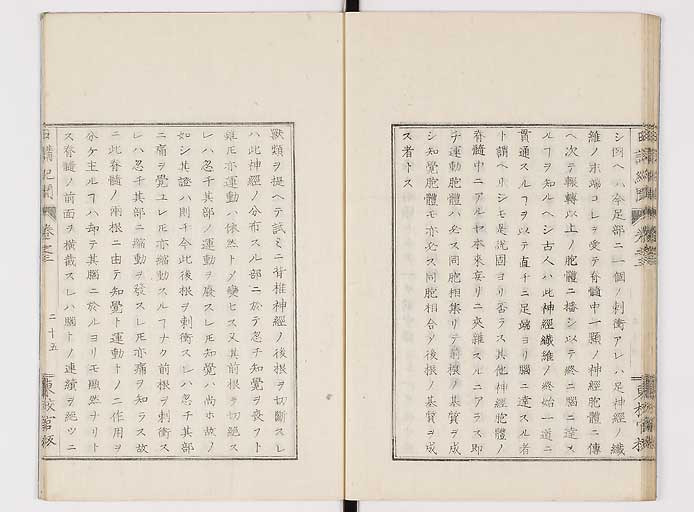 シ例ヘハ今足部ニ一個ノ刺衝アレハ足神經ノ纖
維ノ末端コレヲ受テ脊髓中一顆ノ神經胞體ニ傳
ヘ次テ輾轉以上ノ胞體ニ播シ以テ終ニ腦ニ達ス
ルヿヲ知ルヘシ古人ハ此神經纖維ノ終始一道ニ
貫通スルヿヲ以テ直チニ足端ヨリ腦ニ達スル者
ト謂ヘリシモ是説固ヨリ否ラス其他神經胞體ノ
脊髓中ニアルヤ本來妄リニ夾雜スルニアラス即
チ運動胞體ハ必ス同胞相集リテ前根ノ基質ヲ成
シ知覺胞體モ亦必ス同胞相合ノ後根ノ基質ヲ成
ス者トス
獸類ヲ捉ヘテ試ミニ脊椎神經ノ後根ヲ切斷スレ
ハ此神經ノ分布スル部ニ於テ忽チ知覺ヲ喪フト
雖𪜈亦運動ハ依然トノ變ヒス又其前根ヲ切絕ス
レハ忽チ其部ノ運動ヲ廢スレ𪜈知覺ハ尚ホ故ノ
如シ其證ハ則チ今此後根ヲ刺衝スレハ忽チ其部
ニ痛ヲ覺ユレ𪜈亦縮動スルヿナク前根ヲ刺衝ス
レハ忽チ其部ニ縮動ヲ發スレ𪜈亦痛ヲ知ラス故
ニ此脊髓ノ兩根ニ由テ知覺ト運動トノ二作用ヲ
分ケ主ルヿハ却テ其腦ニ於ルヨリモ顯然ナリト
ス脊髓ノ前面ヲ橫截スレハ腦トノ連續ヲ絕ツニ
日講紀聞 卷之三
二十五
東校官板